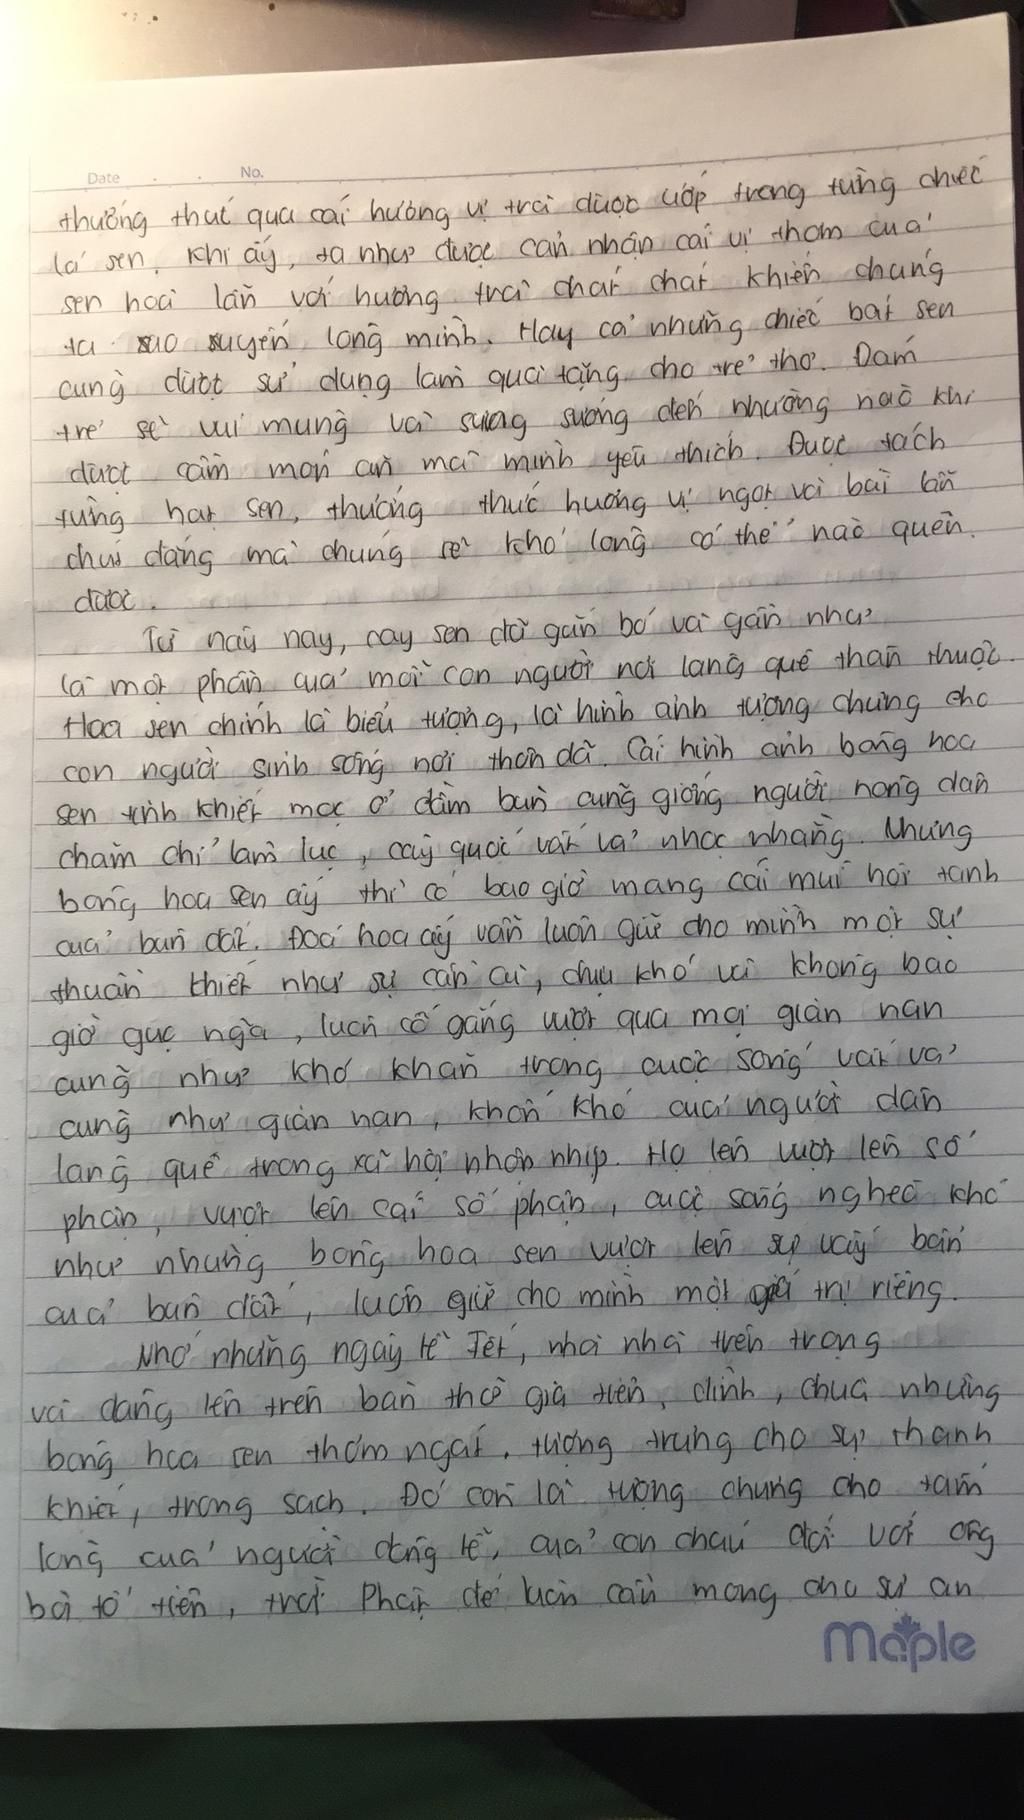 Date . . No.
thưởng thức qua cái hương vị trà được ướp trong từng chiếc
lá sen. Khi ấy, ta như được cảm nhận cái vị thơm của
sen hoà lẫn với hương trà chát chát khiến chúng
ta xao xuyến lòng mình. Hay cả những chiếc bát sen
cũng được sử dụng làm quà tặng cho trẻ thơ. Đám
trẻ sẽ vui mừng và sung sướng đến nhường nào khi
được cầm món ăn mà mình yêu thích. Được tách
từng hạt sen, thưởng thức hương vị ngọt và bùi lẫn
chút đắng mà chúng sẽ khó lòng có thể nào quên
được.
Từ nay nay, cây sen đã gắn bó và gần như
là một phần của mỗi con người nơi làng quê thân thuộc.
Hoa sen chính là biểu tượng, là hình ảnh tượng chưng cho
con người sinh sống nơi thôn dã. Cái hình ảnh bông hoa
sen tinh khiết mọc ở đầm bùn cũng giống người nông dân
chăm chỉ làm lục, cày quốc vất vả nhọc nhằng. Nhưng
bông hoa sen ấy thì có bao giờ mang cái mùi hôi tanh
của bùn đất. Đoá hoa ấy vẫn luôn giữ cho mình một sự
thuần khiết như sự cần cù, chịu khó và không bao
giờ gục ngã, luôn cố gắng vượt qua mọi giàn nan
cũng như khó khăn trong cuộc sống vất vả
cũng như giàn nan, khốn khó của người dân
làng quê trong xã hội nhộn nhịp. Họ lên vượt lên số
phận, vượt lên cái số phận, cuộc sống nghèo khó
như những bông hoa sen vượt lên sự vấy bẩn
của bùn đất, luôn giữ cho mình một giá trị riêng.
Nhớ những ngày lễ Tết, nhà nhà trên trọng
và dâng lên trên bàn thờ gia tiên, đình, chùa những
bông hoa sen thơm ngát, tượng trưng cho sự thanh
khiết, trong sạch. Đó còn là tượng chưng cho tấm
lòng của người dâng lễ, của con cháu đối với ông
bà tổ tiên, trời Phật để luôn cầu mong cho sự an
Maple